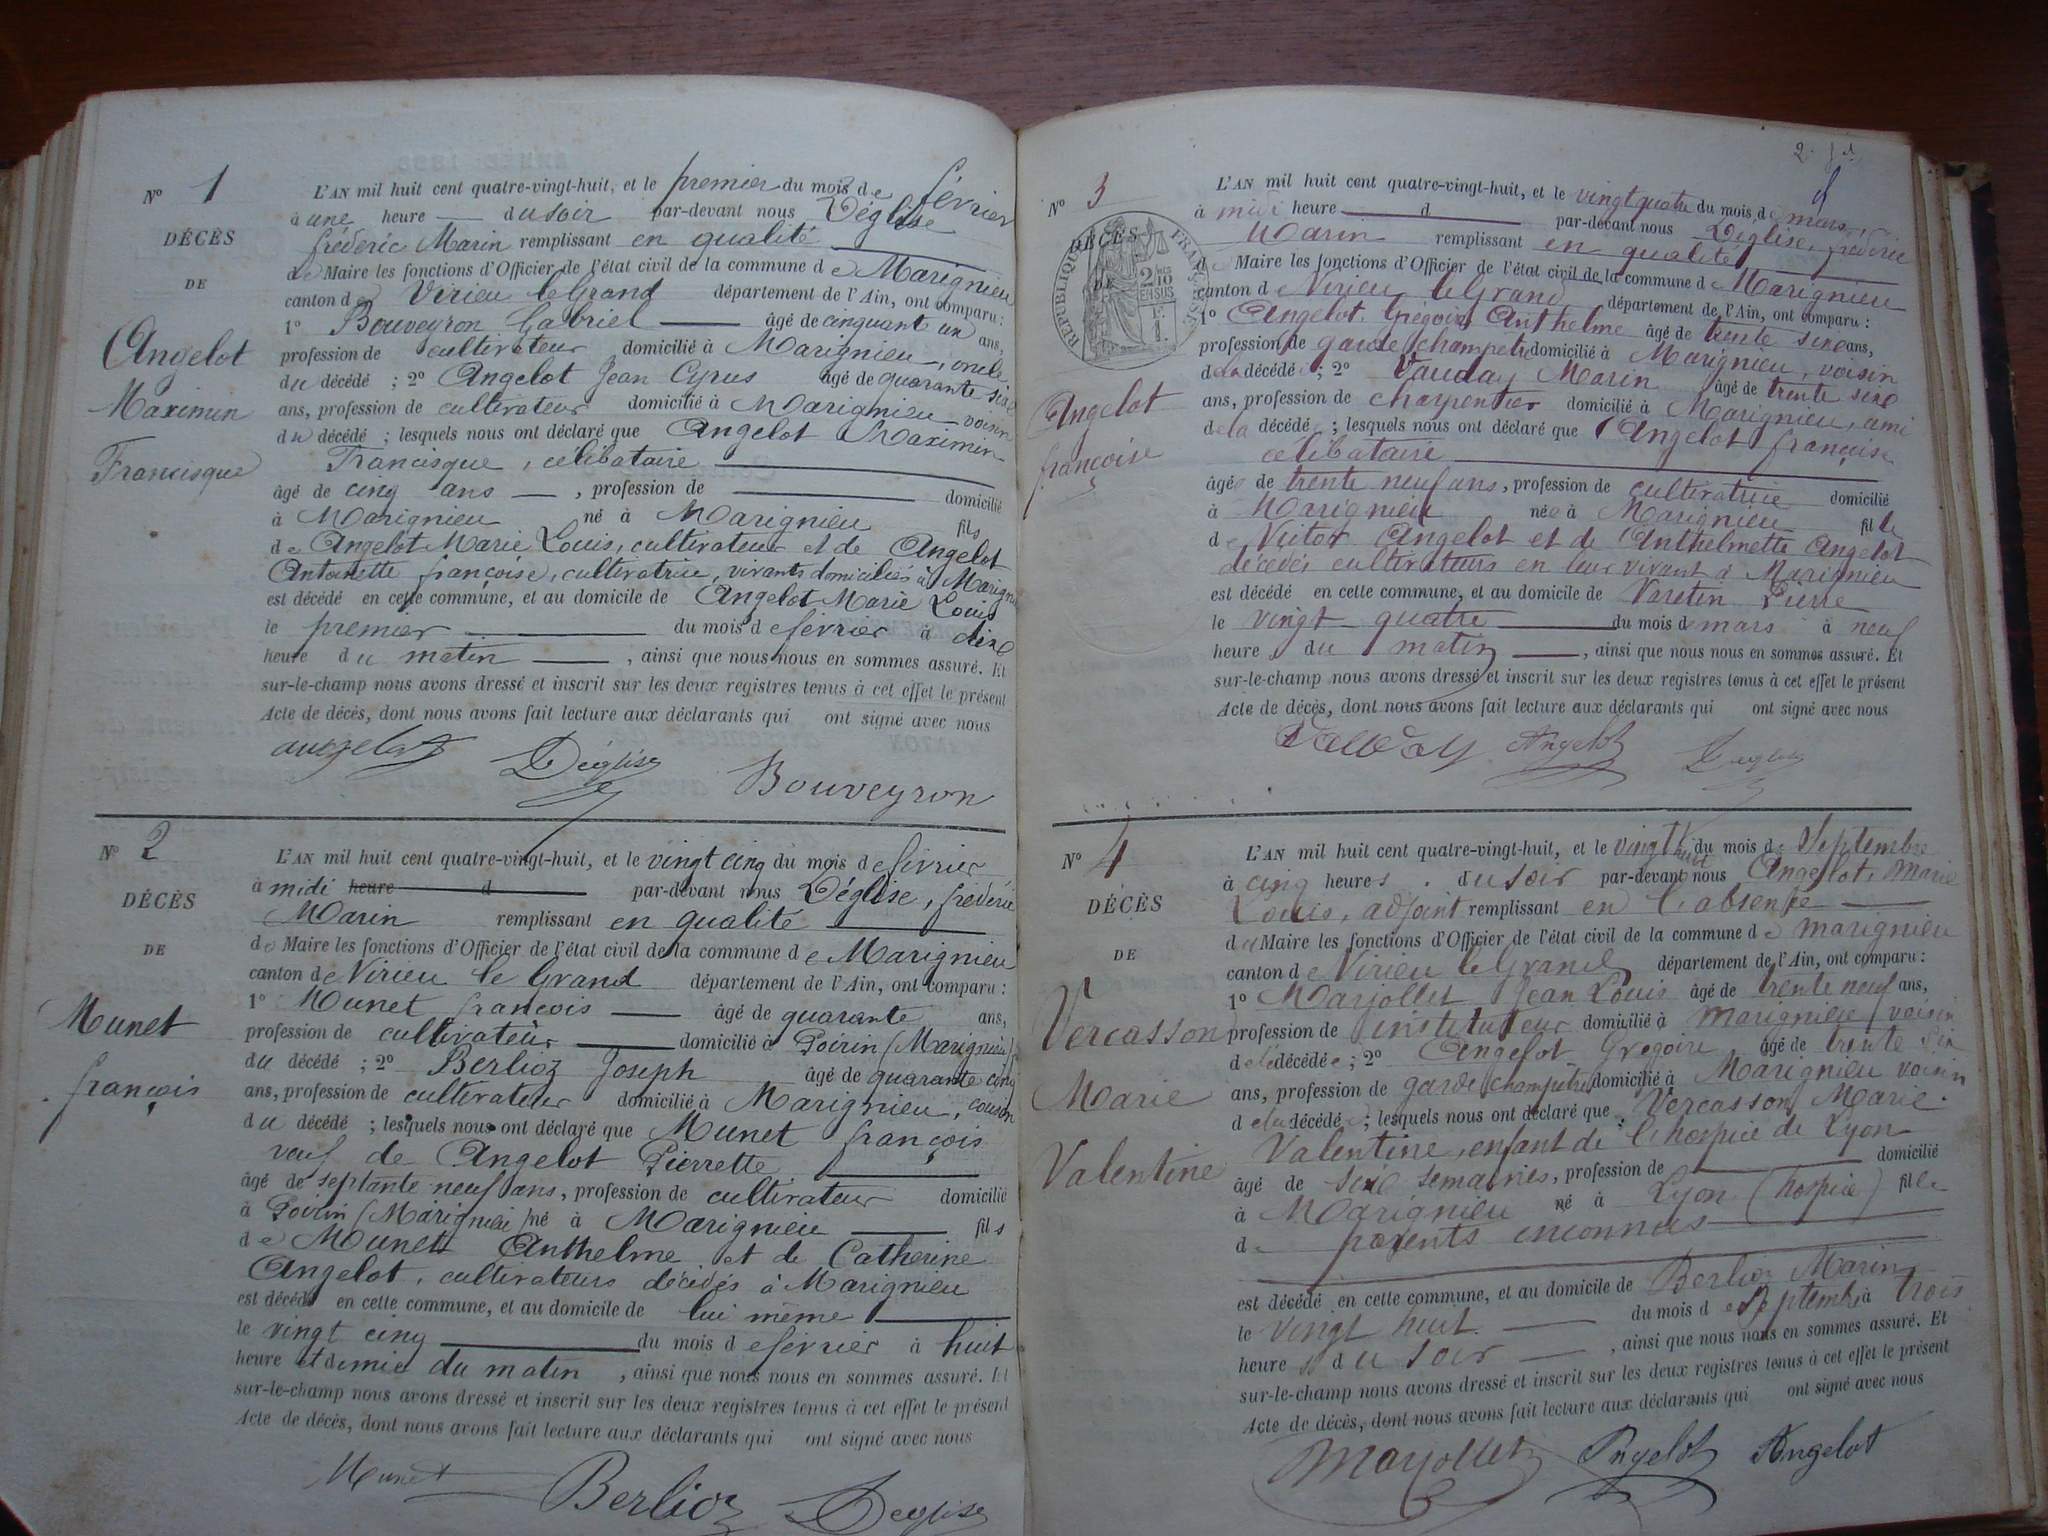 N° 1
DÉCÈS
DE
Angelot
Maximin
Francisque
L'AN mil huit cent quatre-vingt-huit, et le premier du mois de février
à une heure du soir par-devant nous Déglise
fréderic Marin remplissant en qualité
de Maire les fonctions d'Officier de l'état civil de la commune de Marignieu
canton de Virieu le Grand département de l'Ain, ont comparu :
1° Bouveyron Gabriel âgé de cinquant un ans,
profession de cultivateur domicilié à Marignieu, oncle
du décédé ; 2° Angelot Jean Cyrus âgé de quarante six
ans, profession de cultivateur domicilié à Marignieu voisin
du décédé ; lesquels nous ont déclaré que Angelot Maximin
Francisque, célibataire
âgé de cinq ans, profession de domicilié
à Marignieu né à Marignieu fils
de Angelot Marie Louis, cultivateur et de Angelot
Antoinette françoise, cultivatrice, vivants domiciliés à Marignieu
est décédé en cette commune, et au domicile de Angelot Marie Louis
le premier du mois de février à dix
heure du matin, ainsi que nous nous en sommes assuré. Et
sur-le-champ nous avons dressé et inscrit sur les deux registres tenus à cet effet le présent
Acte de décès, dont nous avons fait lecture aux déclarants qui ont signé avec nous
angelot Déglise Bouveyron
N° 2
DÉCÈS
DE
Munet
françois
L'AN mil huit cent quatre-vingt-huit, et le vingt cinq du mois de février
à midi heure d par-devant nous Déglise, fréderic
Marin remplissant en qualité
de Maire les fonctions d'Officier de l'état civil de la commune de Marignieu
canton de Virieu le Grand département de l'Ain, ont comparu :
1° Munet françois âgé de quarante ans,
profession de cultivateur domicilié à Poirin (Marignieu)
du décédé ; 2° Berlioz Joseph âgé de quarante cinq
ans, profession de cultivateur domicilié à Marignieu, cousin
du décédé ; lesquels nous ont déclaré que Munet françois
veuf de Angelot Pierrette
âgé de septante neuf ans, profession de cultivateur domicilié
à Poirin (Marignieu) né à Marignieu fils
de Munet Anthelme et de Catherine
Angelot, cultivateurs décédés à Marignieu
est décédé en cette commune, et au domicile de lui même
le vingt cinq du mois de février à huit
heure et demie du matin, ainsi que nous nous en sommes assuré. Et
sur-le-champ nous avons dressé et inscrit sur les deux registres tenus à cet effet le présent
Acte de décès, dont nous avons fait lecture aux déclarants qui ont signé avec nous
Munet Berlioz Déglise
2
N° 3
DÉCÈS
DE
RÉPUBLIQUE FRANÇAISE
2/10 EN SUS
Angelot
françoise
L'AN mil huit cent quatre-vingt-huit, et le vingt quatre du mois de mars,
à midi heure d par-devant nous Déglise, fréderic
Marin remplissant en qualité
de Maire les fonctions d'Officier de l'état civil de la commune de Marignieu
canton de Virieu le Grand département de l'Ain, ont comparu :
1° Angelot Grégoire Anthelme âgé de trente six ans,
profession de garde champetre domicilié à Marignieu, voisin
de la décédé ; 2° Vauday Marin âgé de trente six
ans, profession de charpentier domicilié à Marignieu, ami
de la décédé ; lesquels nous ont déclaré que Angelot françoise
célibataire
âgée de trente neuf ans, profession de cultivatrice domicilié
à Marignieu née à Marignieu fille
de Victor Angelot et de Anthelmette Angelot
décédés cultivateurs en leur vivant à Marignieu
est décédé en cette commune, et au domicile de Pierre
le vingt quatre du mois de mars à neuf
heure du matin, ainsi que nous nous en sommes assuré. Et
sur-le-champ nous avons dressé et inscrit sur les deux registres tenus à cet effet le présent
Acte de décès, dont nous avons fait lecture aux déclarants qui ont signé avec nous
Vauday Angelot Déglise
N° 4
DÉCÈS
DE
Vercasson
Marie
Valentine
L'AN mil huit cent quatre-vingt-huit, et le vingt huit du mois de Septembre
à cinq heures du soir par-devant nous Angelot Marie
Louis, adjoint remplissant en l'absence
du Maire les fonctions d'Officier de l'état civil de la commune de marignieu
canton de Virieu le Grand département de l'Ain, ont comparu :
1° Marjollet Jean Louis âgé de trente neuf ans,
profession de instituteur domicilié à Marignieu, voisin
de la décédée ; 2° Angelot Gregoire âgé de trente six
ans, profession de garde champêtre domicilié à Marignieu voisin
de la décédé ; lesquels nous ont déclaré que Vercasson Marie
Valentine, enfant de l'hospice de Lyon
âgé de six semaines, profession de domicilié
à Marignieu né à Lyon (hospice) fille
de parents inconnus
est décédé en cette commune, et au domicile de Berlioz Marin
le vingt huit du mois de Septembre à trois
heures du soir, ainsi que nous nous en sommes assuré. Et
sur-le-champ nous avons dressé et inscrit sur les deux registres tenus à cet effet le présent
Acte de décès, dont nous avons fait lecture aux déclarants qui ont signé avec nous
Marjollet Angelot Angelot